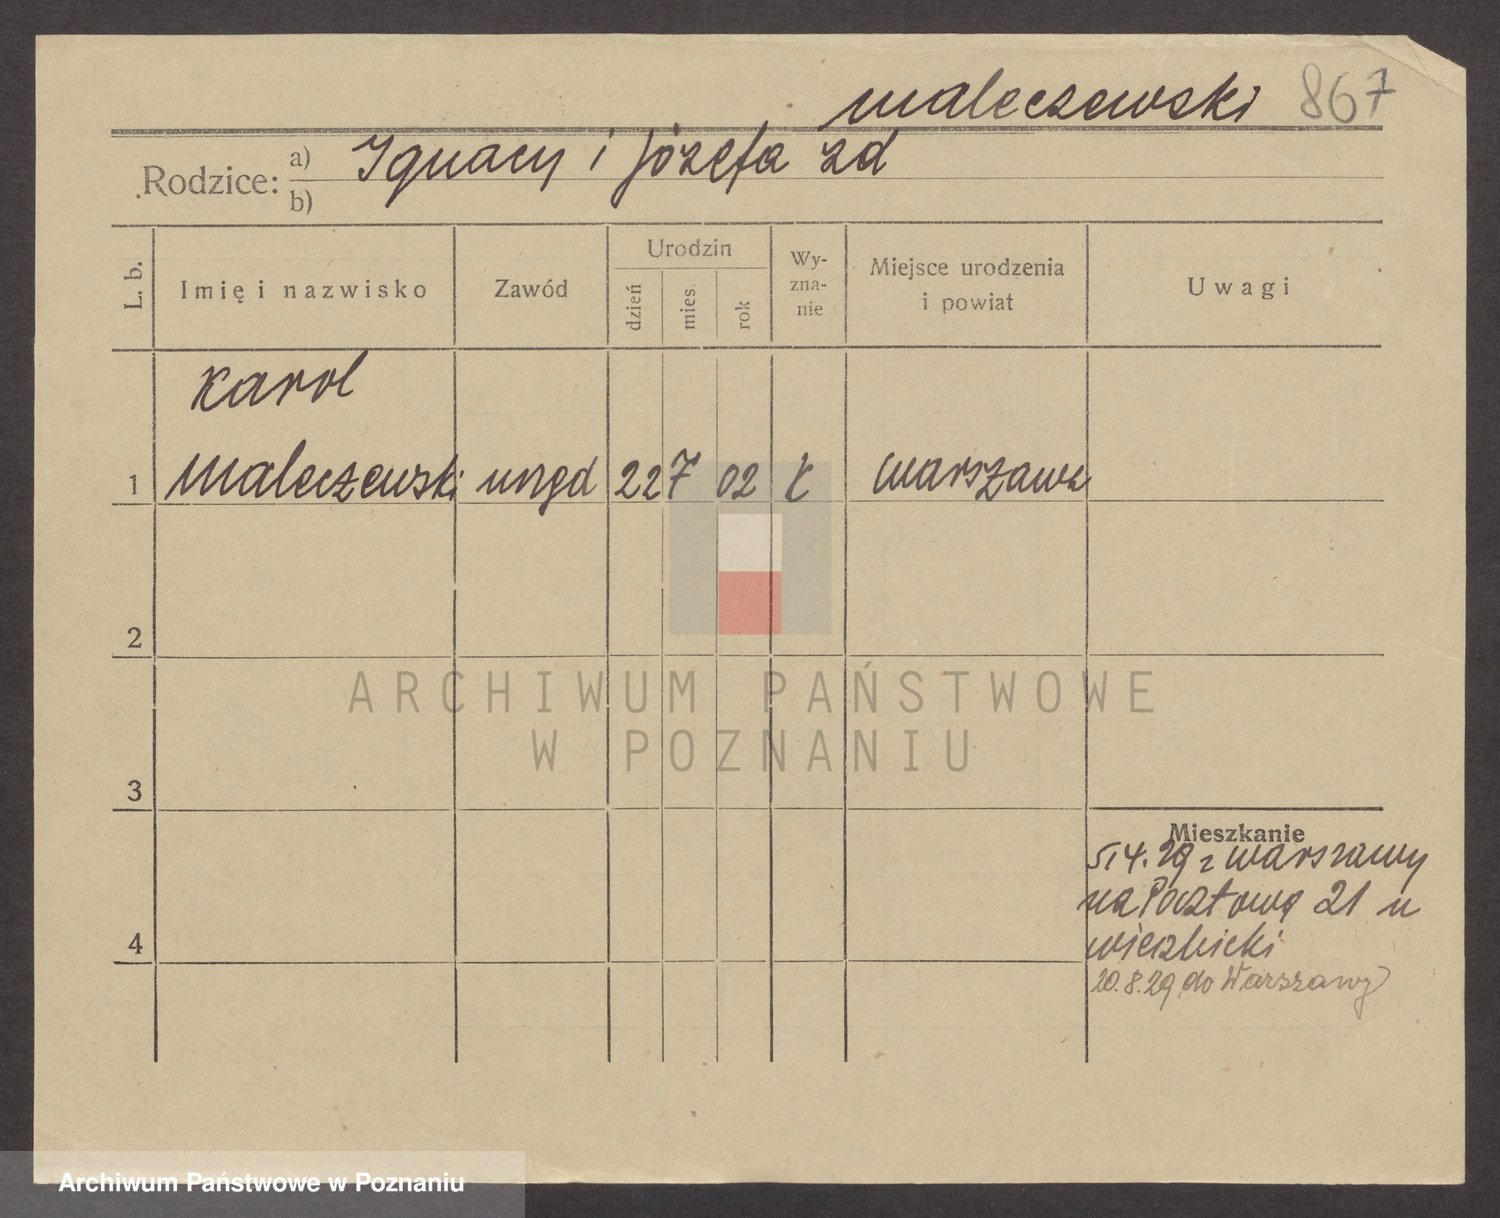 Maleczewski 867
Rodzice: a) Ignacy i Józefa zd
b)
L. b. Imię i nazwisko Zawód Urodzin dzień mies. rok Wyznanie Miejsce urodzenia i powiat Uwagi
Karol
1 Maleczewski urzęd 22 7 02 k Warszawa
2
ARCHIWUM PAŃSTWOWE
W POZNANIU
3
Mieszkanie
5/4.29 z Warszawy
na Pocztową 21 u
4 Wierzbicki
20.8.29 do Warszawy
Archiwum Państwowe w Poznaniu